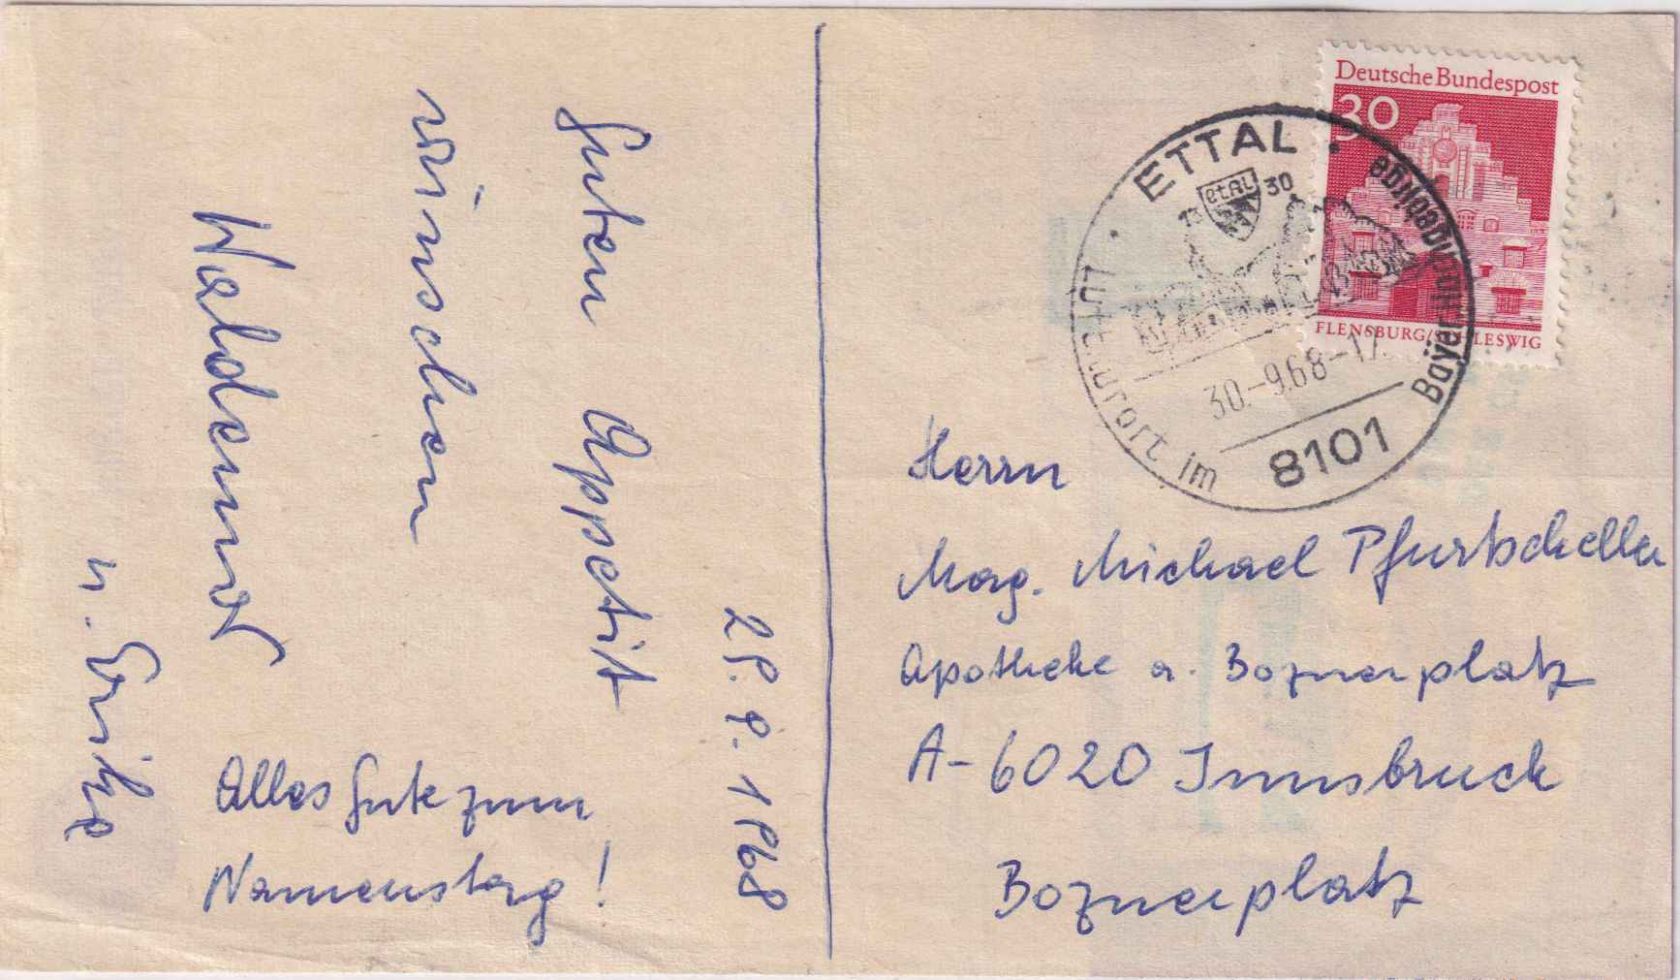 29.9.1968
Guten Appetit
wünschen
Waldemar
u. Erika
Alles Gute zum
Namenstag!
Deutsche Bundespost
30
FLENSBURG/SCHLESWIG
ETTAL
etAL
13 30
Luftkurort im
Bayer. Hochgebirge
30.-9.68-17
8101
Herrn
Mag. Michael Pfurtscheller
Apotheke a. Boznerplatz
A-6020 Innsbruck
Boznerplatz